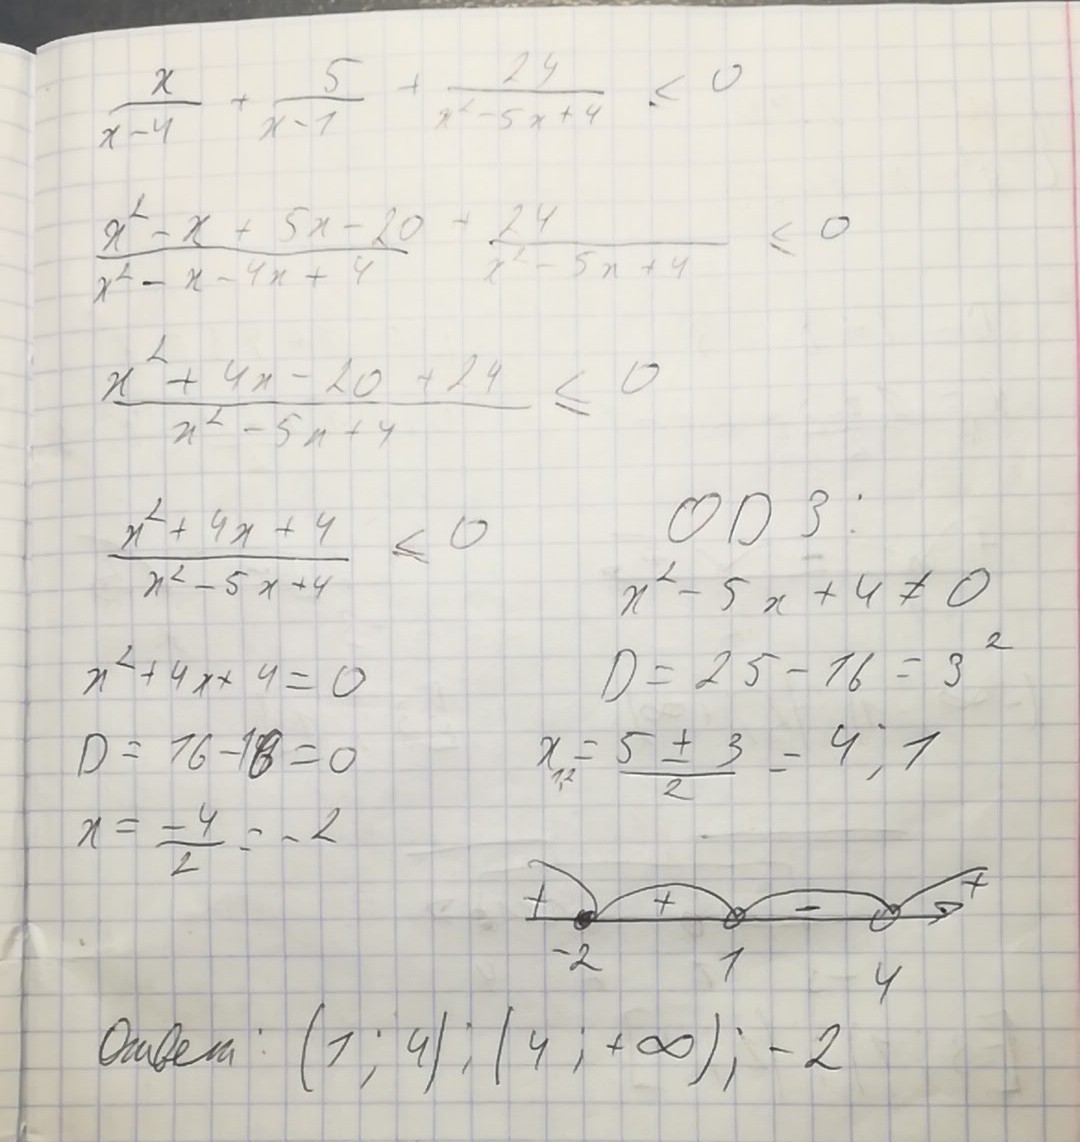 x/(x-4) + 5/(x-1) + 24/(x²-5x+4) ≤ 0
(x²-x+5x-20)/(x²-x-4x+4) + 24/(x²-5x+4) ≤ 0
(x²+4x-20+24)/(x²-5x+4) ≤ 0
(x²+4x+4)/(x²-5x+4) ≤ 0
ОДЗ:
x²-5x+4≠0
x²+4x+4=0
D=25-16=3²
D=16-16=0
x₁,₂=(5±3)/2=4;1
x=-4/2=-2
+ + - +
-2 1 4
Ответ: (1;4);(4;+∞);-2